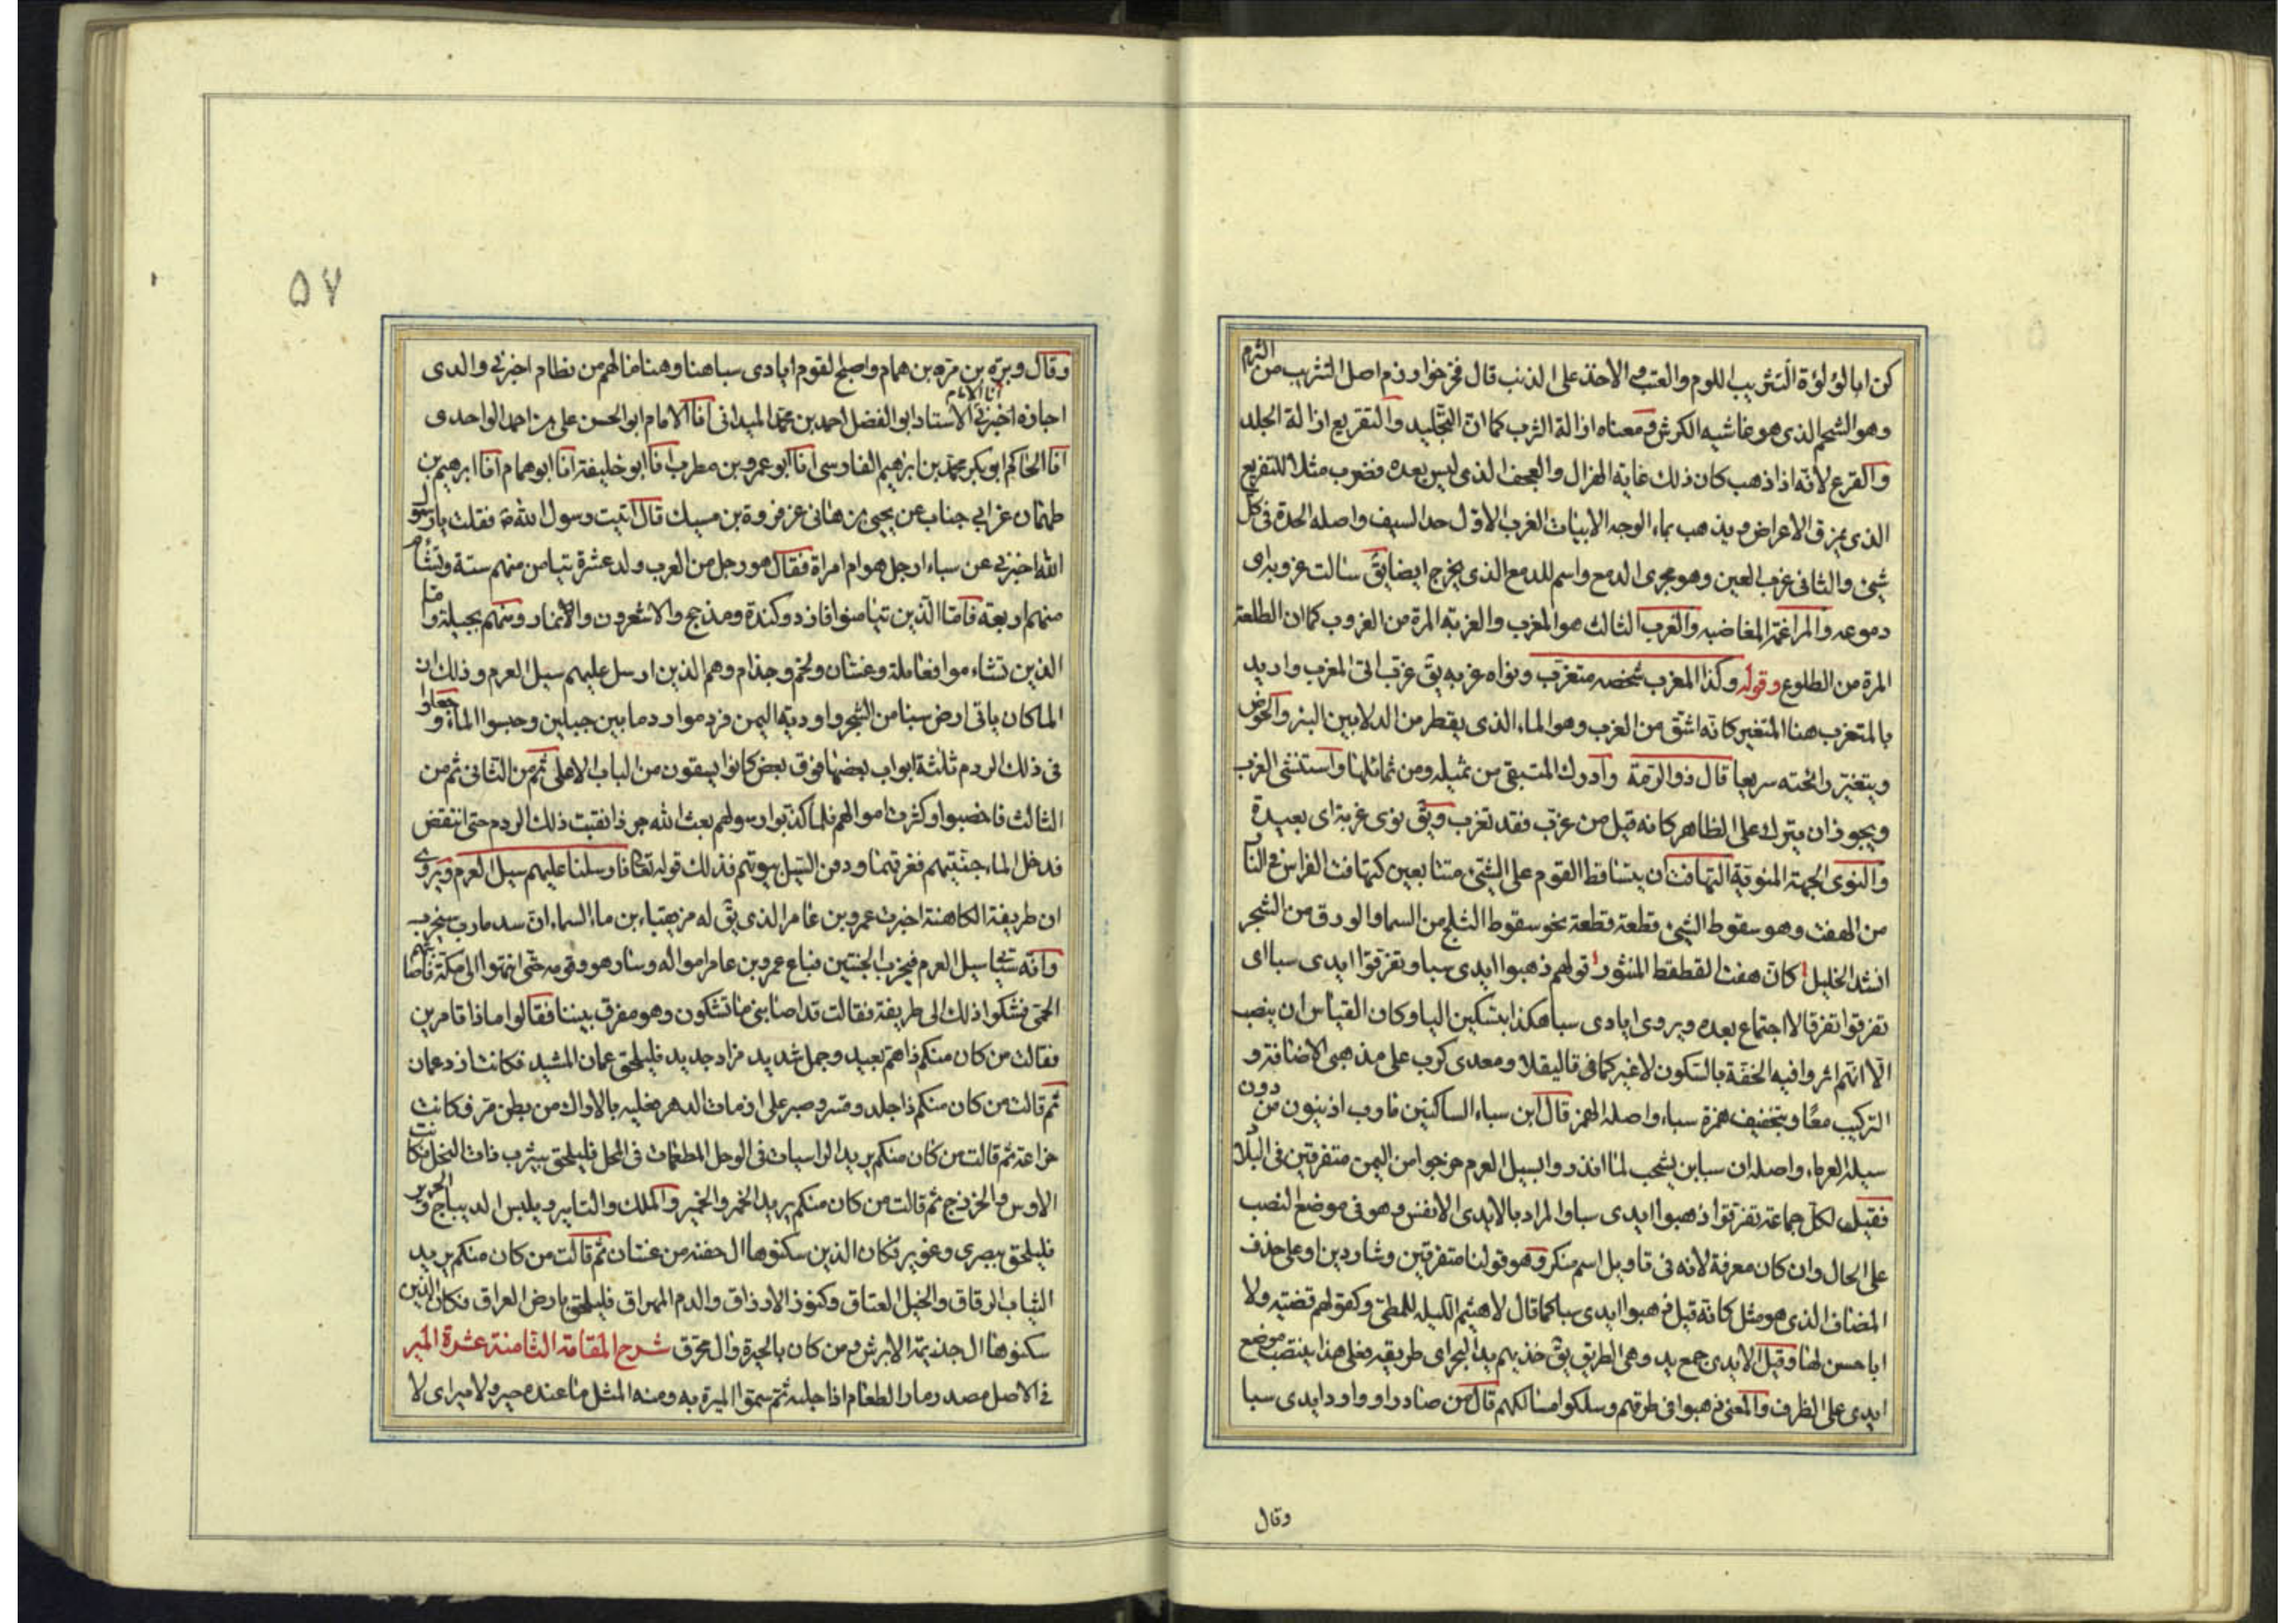 كن ابا لؤلؤة التثريب اللوم والعتب والاخذ على الذنب قال فخر خوارزم اصل التثريب من الثرب
وهو الشحم الذى هو غاشية الكرش ومعناه ازالة الثرب كما ان التجليد والتقريع ازالة الجلد
والقرع لانه اذا ذهب كان ذلك غاية الهزال والعجف الذى ليس بعده فضرب مثلا للتقريع
الذى يمزق الاعراض ويذهب بماء الوجه الابيات الغرب الاول حد السيف واصله الحدة فى كل
شئ والثانى غرب العين وهو مجرى الدمع واسم للدمع الذى يخرج ايضا يق سالت غروبه اى
دموعه والمراغمة المغاضبه والغرب الثالث هو المغرب والغربة المرة من الغروب كما ان الطلعة
المرة من الطلوع وقوله وكذا المغرب شخصه متغرب ونواه غربه يق غرب اتى المغرب واريد
بالمتغرب هنا المتغير كانه اشتق من الغرب وهو الماء الذى يقطر من الدلا بين البئر والحوض
ويتغير رائحته سريعا قال ذو الرمة وادرك المتبقى من ثميله ومن ثمائلها واستنشئ الغرب
ويجوز ان يترك على الظاهر كانه قيل من غرب فقد تغرب ويق نوى غربة اى بعيدة
والنوى الجهة المنوية التهافت ان يتساقط القوم على الشئ متتابعين كتهافت الفراش فى النار
من الهفت وهو سقوط الشئ قطعة قطعة نحو سقوط الثلج من السما والورق من الشجر
انشد الخليل كان هفت القطقط المنثور قولهم ذهبوا ايدى سبا وتفرقوا ايدى سبا اى
تفرقوا تفرقا لا اجتماع بعده ويروى ايادى سبا هكذا بتسكين اليا وكان القياس ان ينصب
الا انهم اثروا فيه الخفة بالسكون لا غير كما فى قاليقلا ومعدى كرب على مذهبى الاضافة و
التركيب معا وبتخفيف همزة سباء واصله الهمز قال ابن سباء الساكنين مارب اذ يبنون من دون
سيله العرماء واصله ان سبا بن يشجب لما انذروا بسيل العرم خرجوا من اليمن متفرقين فى البلاد
فقيل لكل جماعة تفرقوا ذهبوا ايدى سبا والمراد بالايدى الانفس وهو فى موضع النصب
على الحال وان كان معرفة لانه فى تاويل اسم منكر وهو قولنا متفرقين وشاردين او على حذف
المضاف الذى هو مثل كانه قيل ذهبوا ايدى سبا كما قال لا هيثم الليله للمطى وكقولهم قضية ولا
ابا حسن لها وقيل الايدى جمع يد وهى الطريق يق خذ بهم يد البحر اى طريقه فعلى هذا ينتصب موضع
ايدى على الظرف والمعنى ذهبوا فى طرقهم وسلكوا مسالكهم قال من صادر او وارد ايدى سبا
وقال
٥٧
وقال وبرة بن مرة بن همام واصبح لقوم ايادى سبا هنا وهنا ما لهم من نظام اخبرنى والدى
اجازة اخبرنى الاستاد ابو الفضل احمد بن محمد الميدانى انا الامام ابو الحسن على بن احمد الواحدى
انا الحاكم ابو بكر محمد بن ابرهيم الفارسى انا ابو عمرو بن مطرب انا ابو خليفة انا ابو همام انا ابرهيم بن
طهمان عن ابى جناب عن يحيى بن هانى عن فروة بن مسيك قال اتيت رسول الله ص فقلت يا رسول
الله اخبرنى عن سباء ارجل هو ام امراة فقال هو رجل من العرب ولد عشرة تيامن منهم ستة وتشأم
منهم اربعة فاما الذين تيامنوا فازد وكندة ومذحج والاشعرون والانمار ومنهم بجيلة واما
الذين تشاءموا فعاملة وغسان ولخم وجذام وهم الذين ارسل عليهم سيل العرم وذلك ان
الما كان ياتى ارض سبا من الشجر واودية اليمن فردموا ردما بين جبلين وحبسوا الماء وجعلوا
فى ذلك الردم ثلثة ابواب بعضها فوق بعض كانوا يسقون من الباب الاعلى ثم من الثانى ثم من
الثالث فاخضبوا وكثرت اموالهم فلما كذبوا رسولهم بعث الله جرذا نقبت ذلك الردم حتى انتقض
فدخل الماء جنتيهم فغرقهما ودفن السيل بيوتهم فذلك قوله تعالى فارسلنا عليهم سيل العرم ويروى
ان طريفة الكاهنة اخبرت عمرو بن عامر الذى يق له مزيقياء بن ماء السماء ان سد مارب سيخرب
وانه سيجئ سيل العرم فيخرب الجنتين فباع عمرو بن عامر امواله وسار هو وقومه حتى انتهوا الى مكة فاصابتهم
الحمى فشكوا ذلك الى طريفة فقالت قد اصابنى ما تشكون وهو مفرق بيننا فقالوا ماذا تامرين
فقالت من كان منكم ذا هم بعيد وجمل شديد مزاد جديد فليلحق عمان المشيد فكانت ازد عمان
ثم قالت من كان منكم ذا جلد وقسر وصبر على ازمات الدهر فعليه بالاراك من بطن مر فكانت
خزاعة ثم قالت من كان منكم يريد الراسيات فى الوحل المطعمات فى المحل فليلحق بيثرب ذات النخل فكانت
الاوس والخزرج ثم قالت من كان منكم يريد الخمر والخمير والملك والتامير ويلبس الديباج والحرير
فليلحق ببصرى وغوير فكان الذين سكنوها ال جفنه من غسان ثم قالت من كان منكم يريد
الثياب الرقاق والخيل العتاق وكنوز الارزاق والدم المهراق فليلحق بارض العراق فكان الذين
سكنوها ال جذيمة الابرش ومن كان بالحيرة وال محرق شرح المقامة الثامنة عشرة المير
فى الاصل مصدر مار الطعام اذا جلبه ثم سمو الميرة به ومنه المثل ما عنده خير ولا مير اى لا